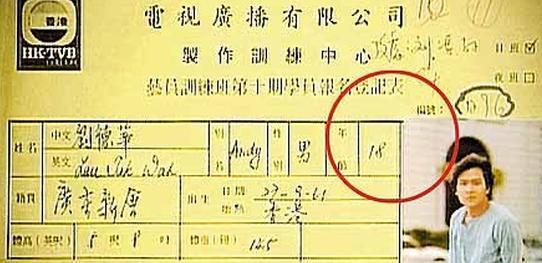 香港
HK-TVB
電視廣播有限公司
製作訓練中心
日班☑
藝員訓練班第十期學員報名登記表
夜班☐
編號: 1096
姓名 中文 劉德華 別名 Andy 性別 男 年齡 18
英文 Lau Tak Wah
籍貫 廣東新會 出生 日期 27-9-61
地點 香港
體高(英呎) 5 呎 8 吋 體重(磅) 145